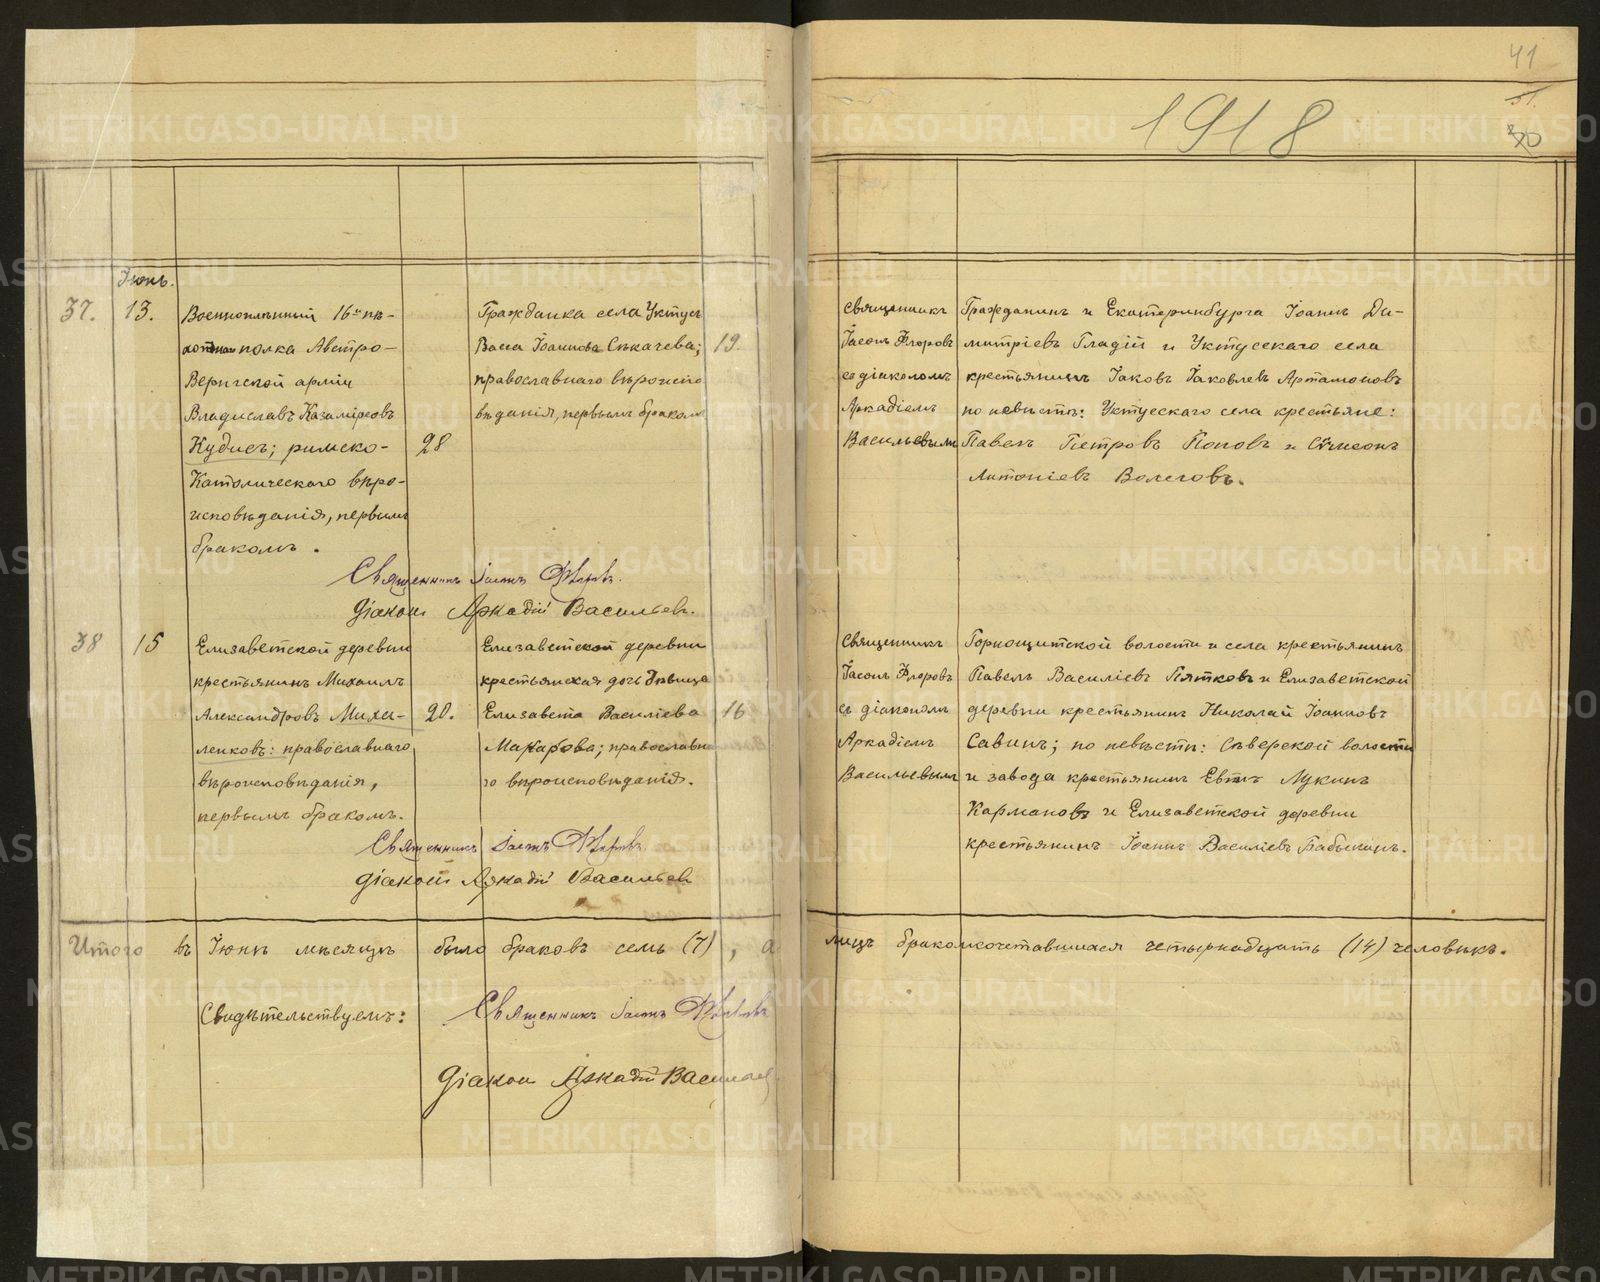 41
31.
30
1918
Іюнь.
37.
13.
Военноплѣнный 16го пѣ-
хотнаго полка Австро-
Венгерской арміи
Владиславъ Казаміровъ
Кудисъ; римско-
Католическаго вѣро-
исповѣданія, первымъ
бракомъ.
28
Гражданка села Уктусъ
Васса Іоаннова Сѣкачева;
православнаго вѣроиспо
вѣданія, первымъ бракомъ
19.
Священникъ
Іасонъ Флоровъ
съ діакономъ
Аркадіемъ
Васильевымъ
Гражданинъ г. Екатеринбурга Іоаннъ Ди-
митріевъ Гладій и Уктусскаго села
крестьянинъ Іаковъ Іаковлевъ Артамоновъ
по невѣстѣ: Уктусскаго села крестьяне:
Павелъ Петровъ Поповъ и Симеонъ
Антоніевъ Волеговъ.
Священникъ Іасонъ Флоровъ.
Діаконъ Аркадій Васильевъ.
38
15
Елизаветской деревни
крестьянинъ Михаилъ
Александровъ Миха-
ленковъ: православнаго
вѣроисповѣданія,
первымъ бракомъ.
20.
Елизаветской деревни
крестьянская дочь дѣвица
Елизавета Василіева
Макарова; православна
го вѣроисповѣданія.
16
Священникъ
Іасонъ Флоровъ
съ діакономъ
Аркадіемъ
Васильевымъ
Горнощитской волости и села крестьянинъ
Павелъ Василіевъ Пятковъ и Елизаветской
деревни крестьянинъ Николай Іоанновъ
Савинъ; по невѣстѣ: Сѣверской волости
и завода крестьянинъ Евтъ Лукинъ
Кармановъ и Елизаветской деревни
крестьянинъ Іоаннъ Василіевъ Бабыкинъ.
Священникъ Іасонъ Флоровъ
Діаконъ Аркадій Васильевъ
Итого въ Іюнѣ мѣсяцѣ было браковъ семь (7), а лицъ бракомсочетавшихся четырнадцать (14) человѣкъ.
Свидѣтельствуемъ: Священникъ Іасонъ Флоровъ
Діаконъ Аркадій Васильевъ
METRIKI.GASO-URAL.RU